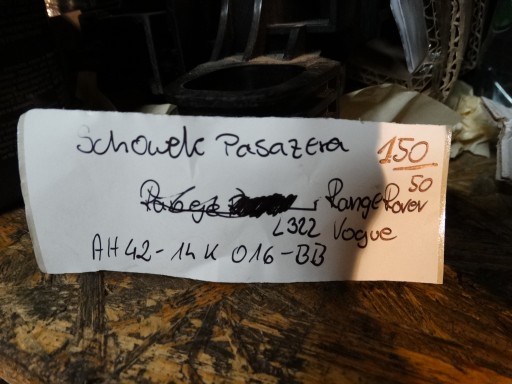 Schowek Pasazera 150
50
Range Rover
L322 Vogue
AH42-14K 016-BB